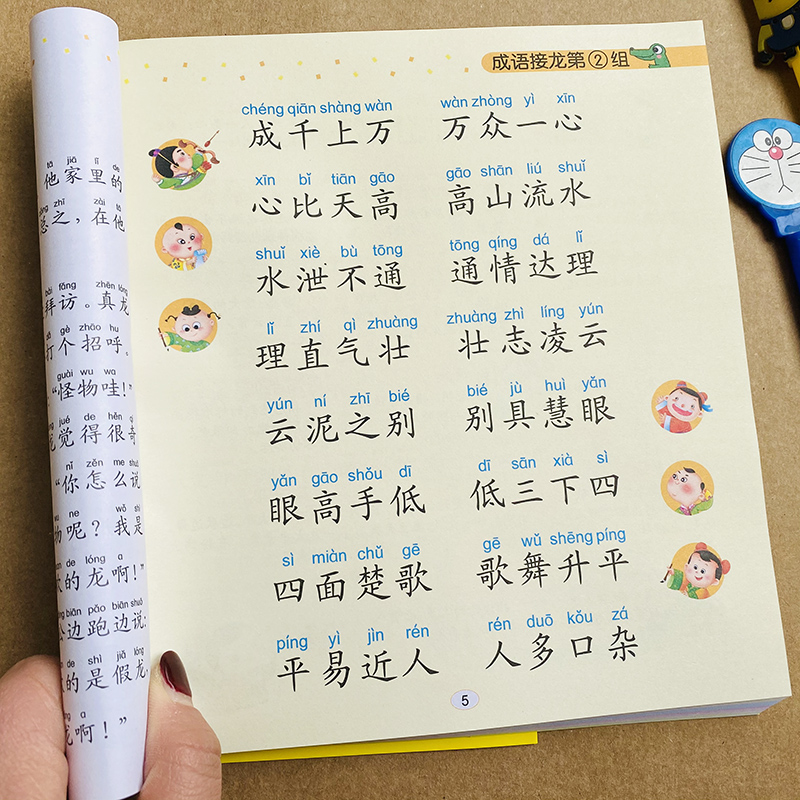 tā jiā lǐ de
他家里的
zhī zài tā
之，在他
fǎng zhēn lóng
拜访。真龙
gè zhāo hu
打个招呼。
guài wu wa
“怪物哇！”
jué de hěn
觉得很奇
nǐ zěn me shuō
“你怎么说
ne wǒ shì
物呢？我是
de lóng a
的龙啊！”
biān pǎo biān shuō
边跑边说：
de shì jiǎ lóng
的是假龙，
a
龙啊！”
成语接龙第②组
chéng qiān shàng wàn wàn zhòng yì xīn
成千上万 万众一心
xīn bǐ tiān gāo gāo shān liú shuǐ
心比天高 高山流水
shuǐ xiè bù tōng tōng qíng dá lǐ
水泄不通 通情达理
lǐ zhí qì zhuàng zhuàng zhì líng yún
理直气壮 壮志凌云
yún ní zhī bié bié jù huì yǎn
云泥之别 别具慧眼
yǎn gāo shǒu dī dī sān xià sì
眼高手低 低三下四
sì miàn chǔ gē gē wǔ shēng píng
四面楚歌 歌舞升平
píng yì jìn rén rén duō kǒu zá
平易近人 人多口杂
5